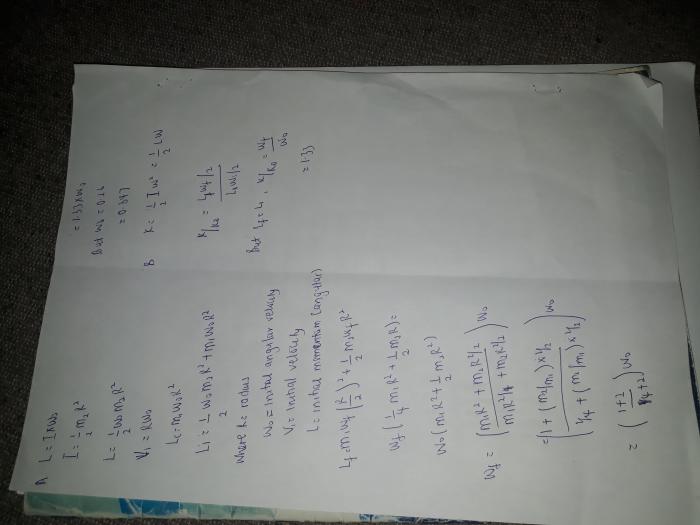 A L = I R W0
I = 1/2 m2 R²
L = 1/2 W0 m2 R²
V1 = R W0
Lc = m1 W0 R²
Li = 1/2 W0 m2 R² + m1 W0 R²
Where R = radius
W0 = Initial angular velocity
Vi = Initial velocity
L = Initial momentum (angular)
Lf = m1 Wf (R/2)² + 1/2 m2 Wf R²
Wf (1/4 m1 R² + 1/2 m2 R) =
W0 (m1 R² + 1/2 m2 R²)
Wf = (m1 R² + m2 R² 1/2 / m1 R² 1/4 + m2 R² 1/2) W0
= (1 + (m2/m1) × 1/2 / 1/4 + (m2/m1) × 1/2) W0
= (1 + 2 / 1/4 + 2) W0
= 1.33 × W0
But W0 =
B K = 1/2 I w² = 1/2 L w
K/K0 = Lf Wf/2 / Li Wi/2
But Lf = Li, K/K0 = Wf/W0
= 1.33